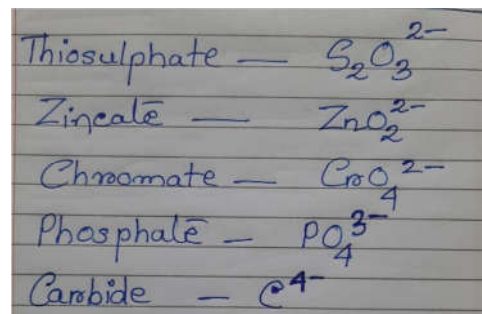 Thiosulphate — S₂O₃²⁻
Zincate — ZnO₂²⁻
Chromate — CrO₄²⁻
Phosphate — PO₄³⁻
Carbide — C⁴⁻